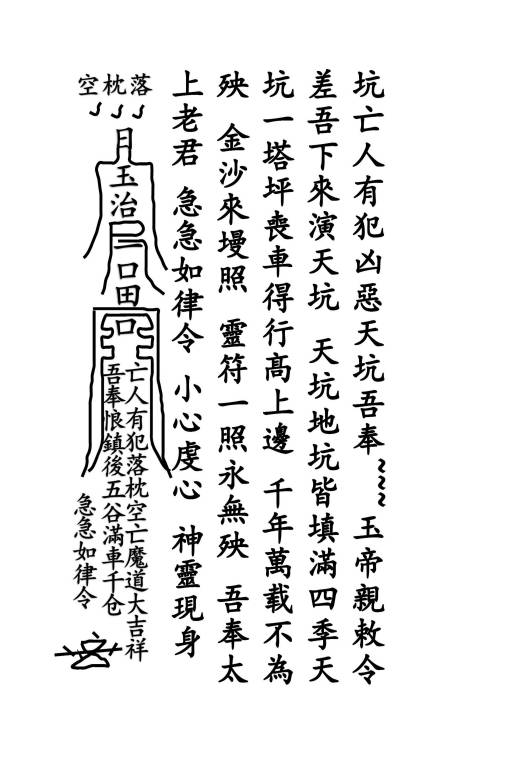 坑亡人有犯凶惡天坑吾奉 玉帝親敕令
差吾下來演天坑 天坑地坑皆填滿四季天
坑一塔坪喪車得行高上邊 千年萬載不為
殃 金沙來墁照 靈符一照永無殃 吾奉太
上老君 急急如律令 小心虔心 神靈現身
落枕空
月
玉
治
口
田
口
亡人有犯落枕空亡魔道大吉祥
吾奉恨鎮後五谷滿車千仓
急急如律令